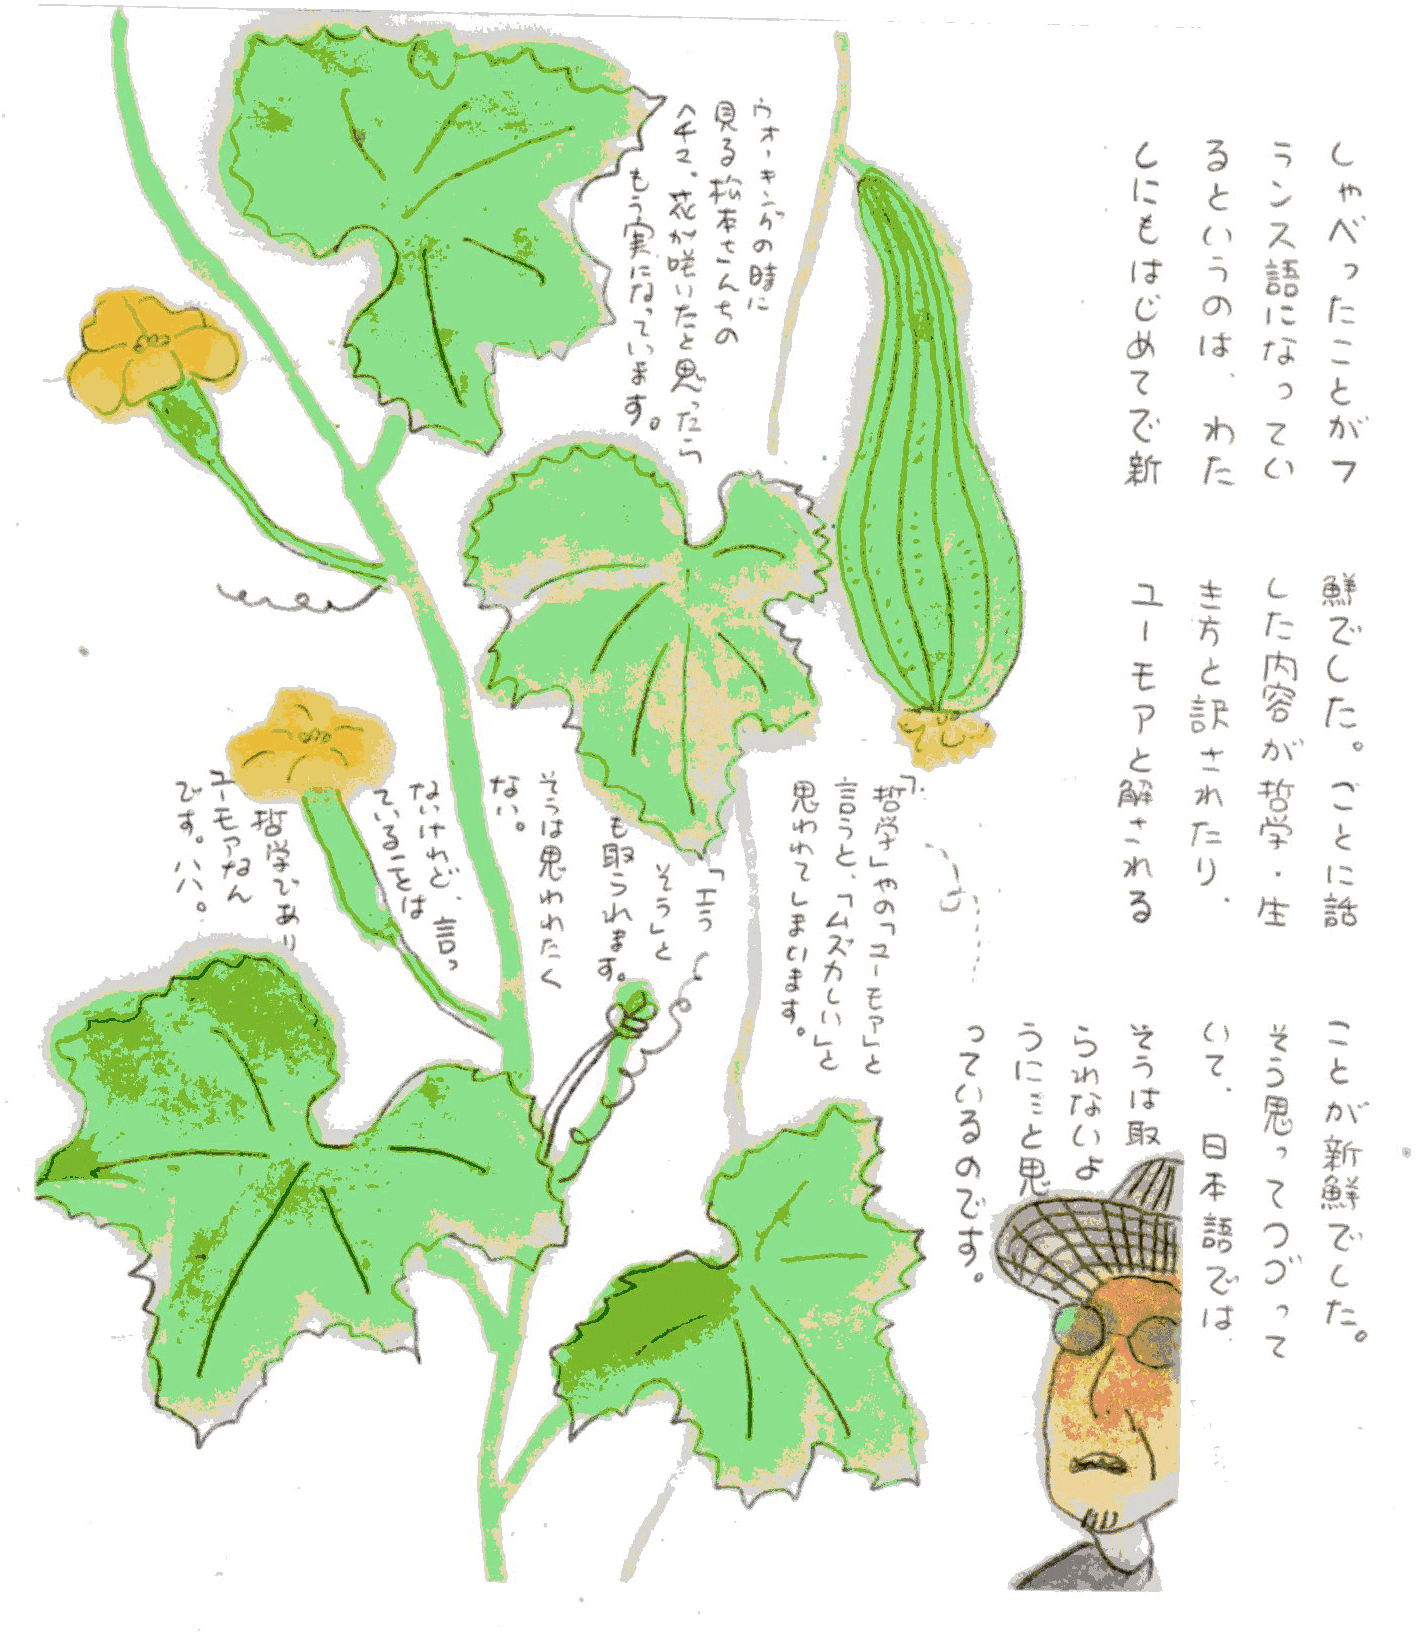 しゃべったことがフ
ランス語になってい
るというのは、わた
しにもはじめてで新
鮮でした。ことに話
した内容が哲学・生
き方と訳されたり、
ユーモアと解される
ことが新鮮でした。
そう思ってつづって
いて、日本語では、
そうは取
られないよ
うにミと思
っているのです。
ウォーキングの時に
見る松本さんちの
ヘチマ、花が咲いたと思ったら
もう実になっています。
「哲学」やの「ユーモア」と
言うと、「ムズカしい」と
思われてしまいます。
「エラ
そう」と
も取られます。
そうは思われたく
ない。
ないけれど、言っ
ていることは
哲学であり
ユーモアなん
です。ハハ。